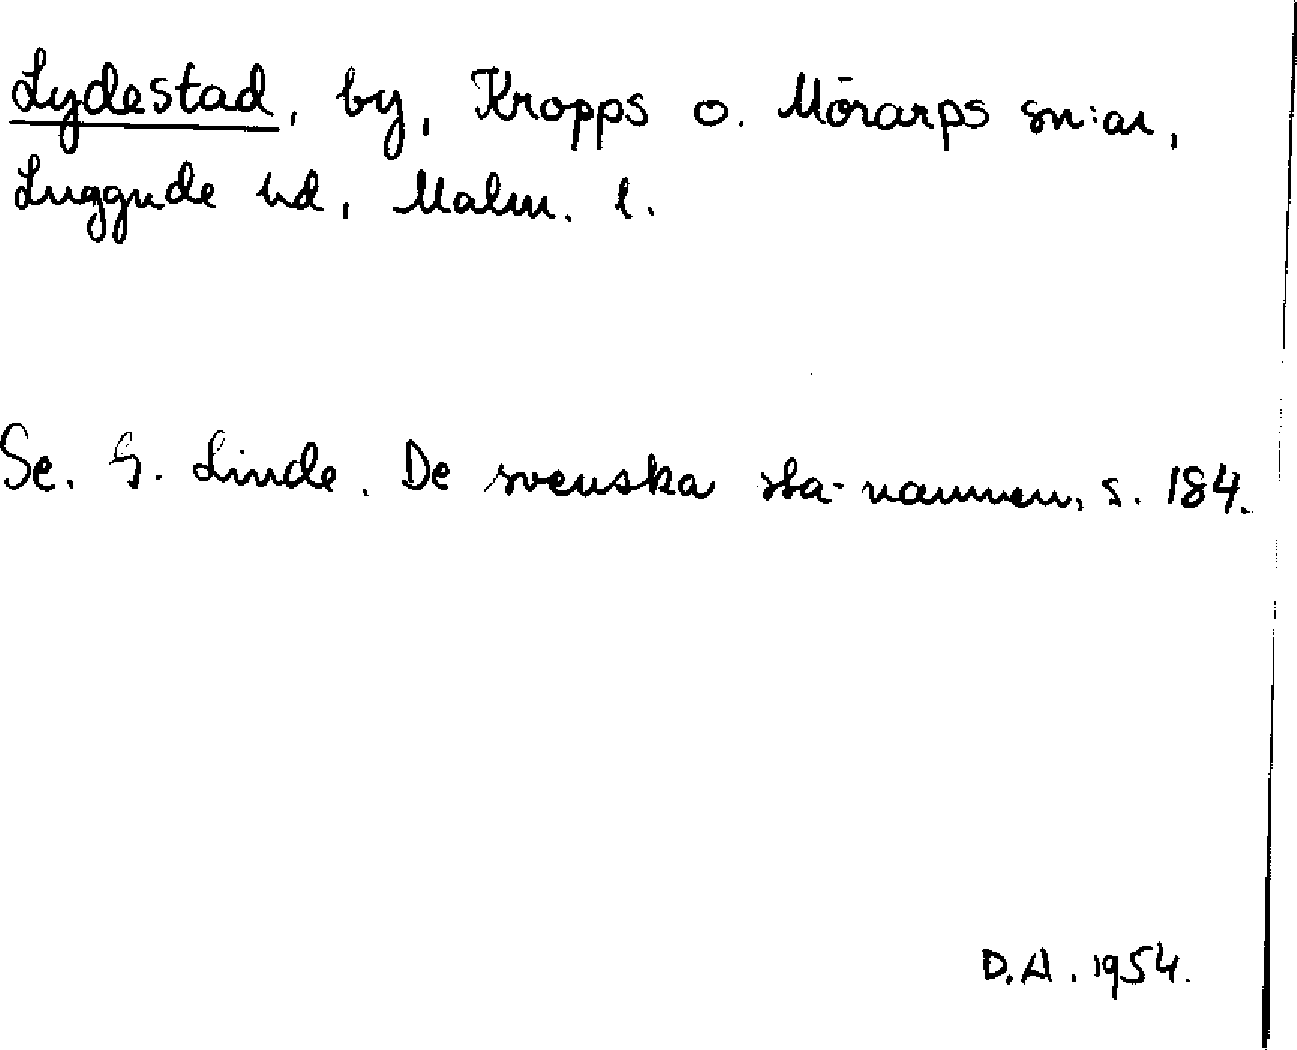 Lydestad, by, Kropps o. Mörarps sn:ar,
Luggude hd, Malm. l.
Se. G. Linde. De svenska sta-namnen, s. 184.
D.A. 1954.